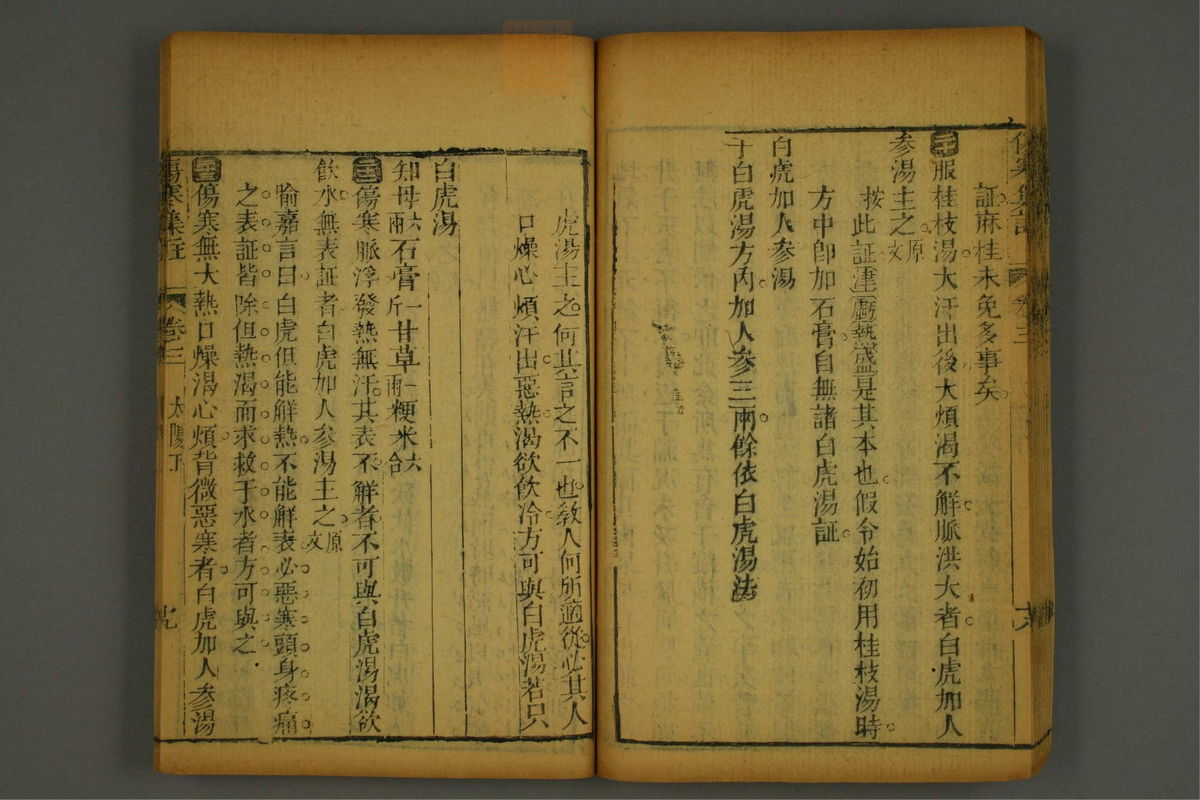 傷寒集註 卷三
証麻桂未免多事矣
服桂枝湯大汗出後大煩渴不解脈洪大者白虎加人
参湯主之原文
按此証津液熱盛是其本也假令始初用桂枝湯時
方中卽加石膏自無諸白虎湯証
白虎加人参湯
于白虎湯方內加人参三兩餘依白虎湯法
虎湯主之何其言之不一也敎人何所適從必其人
口燥心煩汗出惡熱渴欲飮冷方可與白虎湯若只
白虎湯
知母六兩石膏一斤甘草一兩粳米六合
傷寒脈浮發熱無汗其表不解者不可與白虎湯渴欲
飮水無表証者白虎加人参湯主之原文
喻嘉言曰白虎但能解熱不能解表必惡寒頭身疼痛
之表証皆除但熱渴而求救于水者方可與之
傷寒無大熱口燥渴心煩背微惡寒者白虎加人参湯
傷寒集註 卷三 太陽下